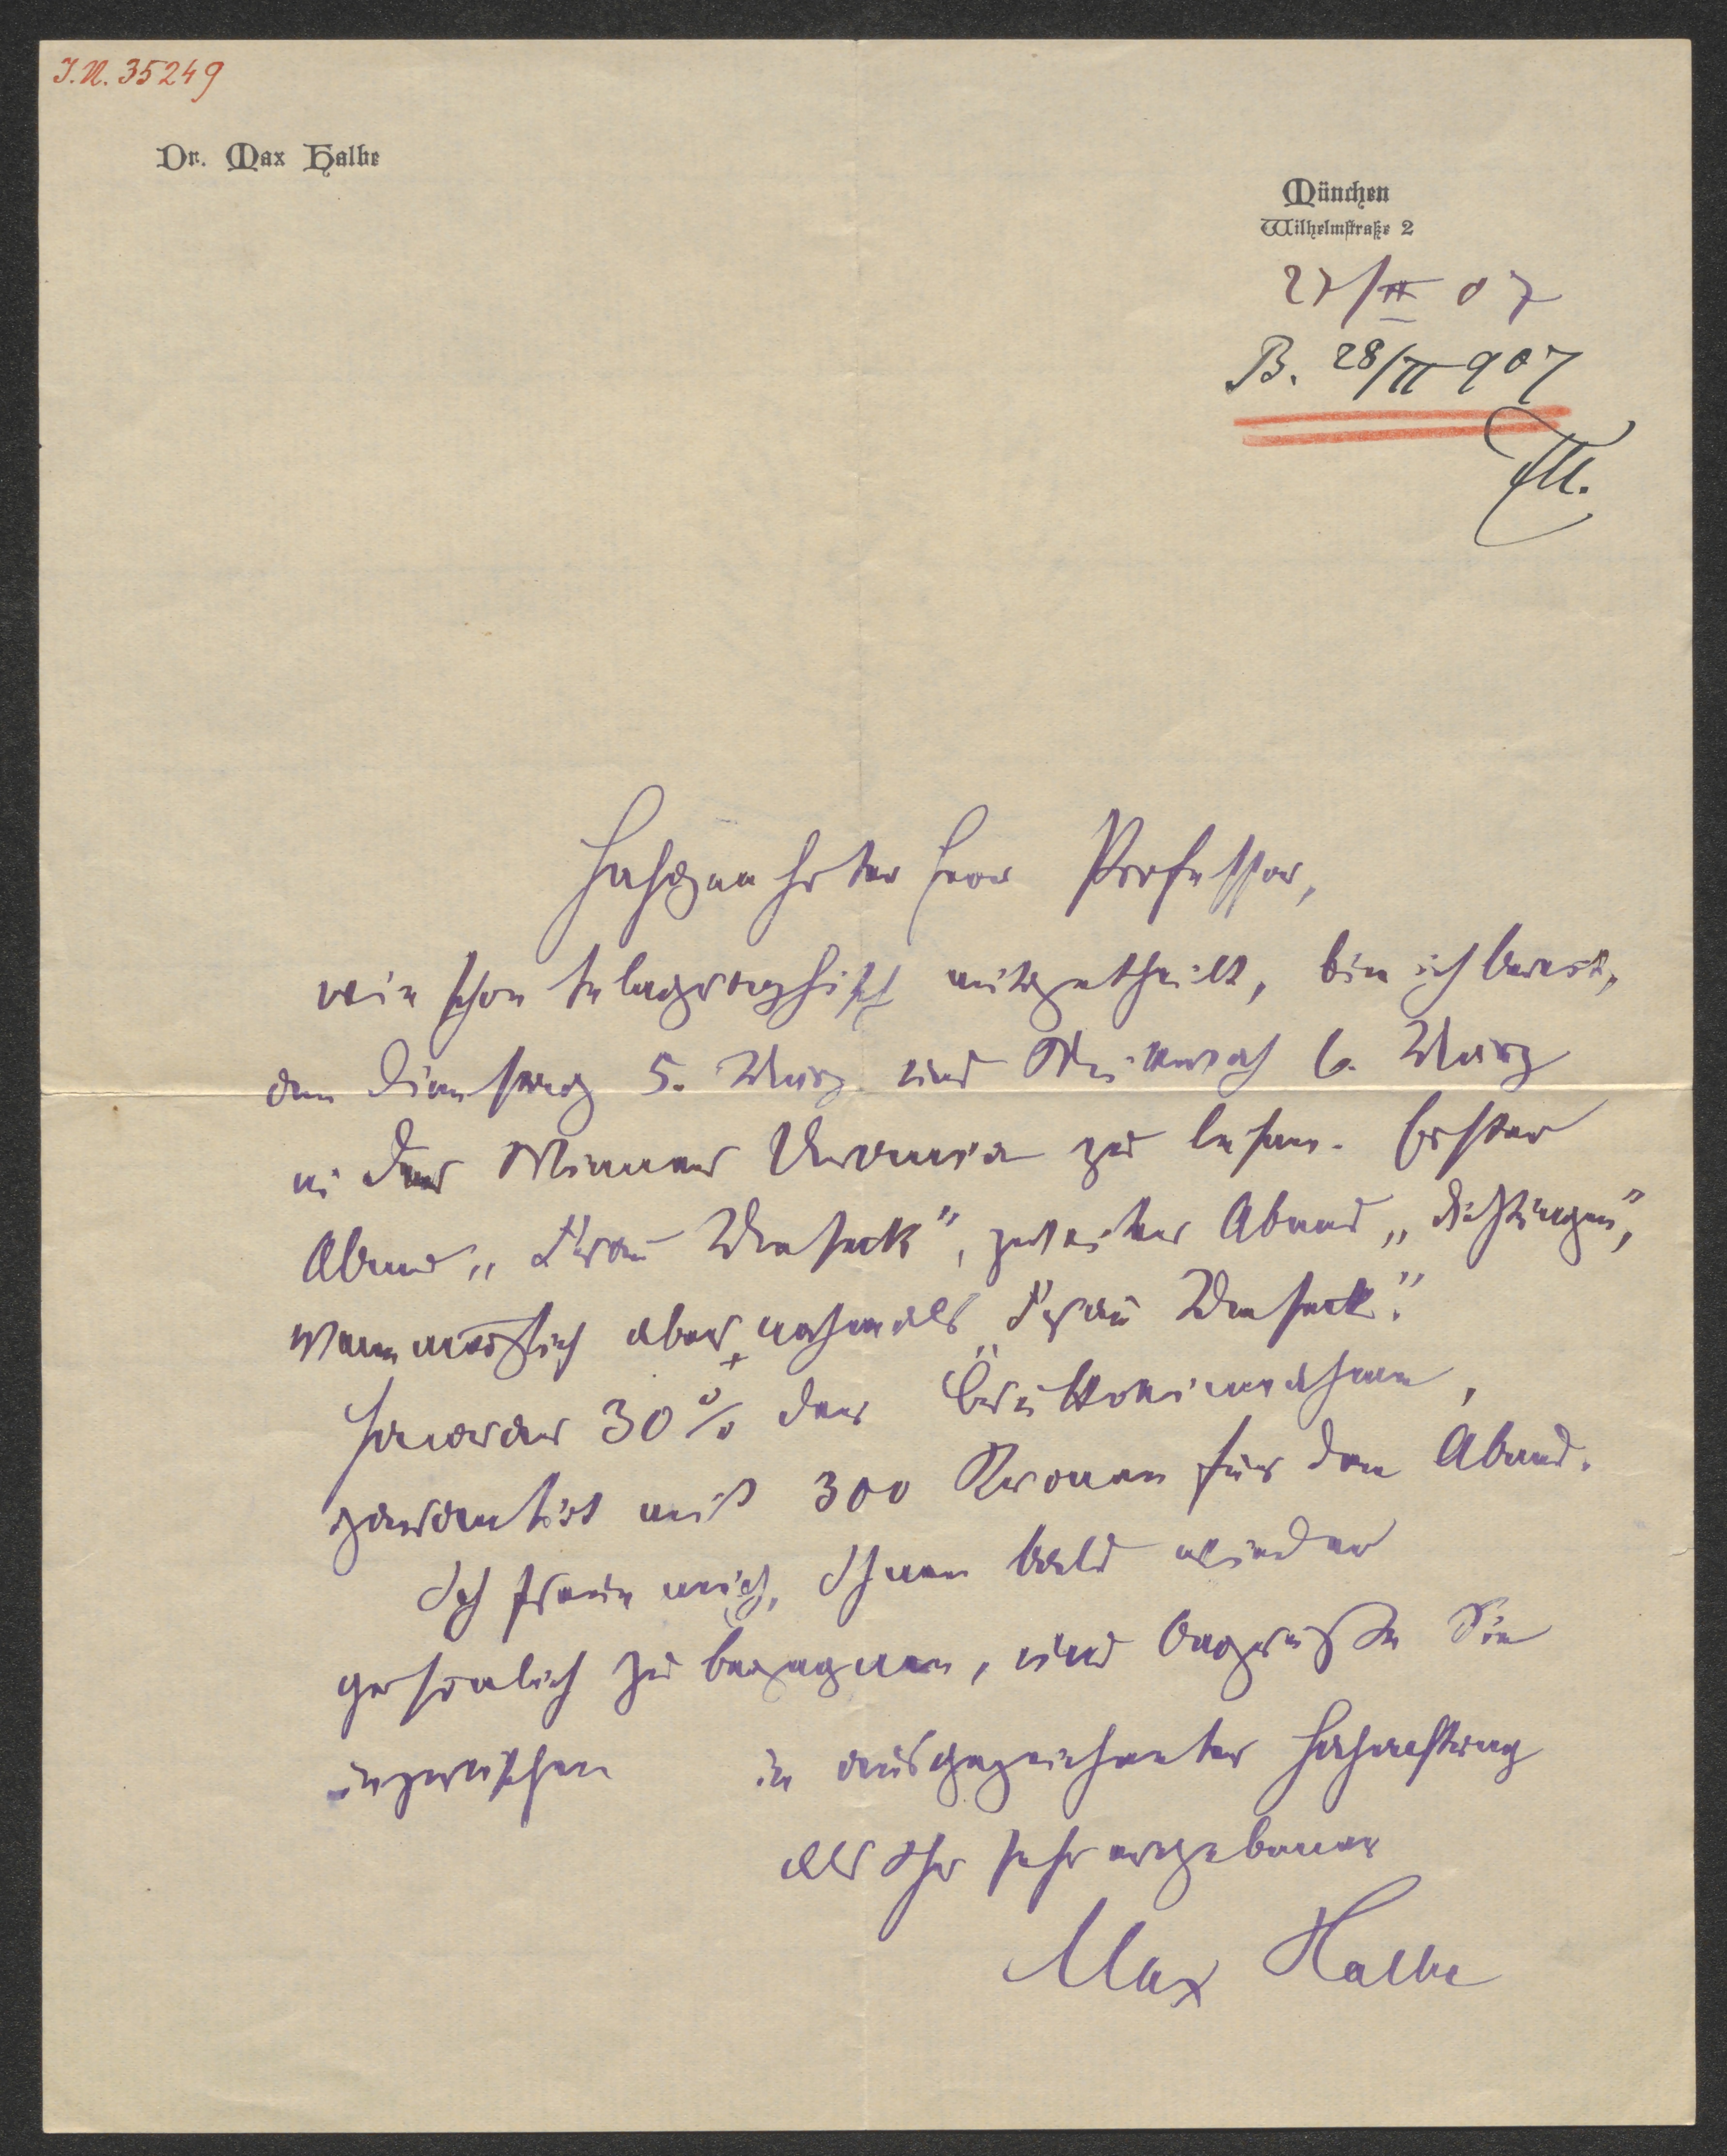 I.N. 35249
Dr. Max Halbe
München
Wilhelmstraße 2
27/II 07
B. 28/II 907
Hochgeehrter Herr Professor,
wie schon telegraphisch mitgetheilt, bin ich bereit,
am Dienstag 5. März und Mittwoch 6. März
in der Wiener Urania zu lesen. Erster
Abend „Frau Meseck", zweiter Abend „Dichtungen",
wenn möglich aber nochmals „Frau Meseck".
Honorar 30% der Bruttoeinnahme,
garantirt mit 300 Kronen für den Abend.
Ich freue mich, Ihnen bald wieder
persönlich zu begegnen, und begrüße Sie
inzwischen in ausgezeichneter Hochachtung
als Ihr sehr ergebener
Max Halbe